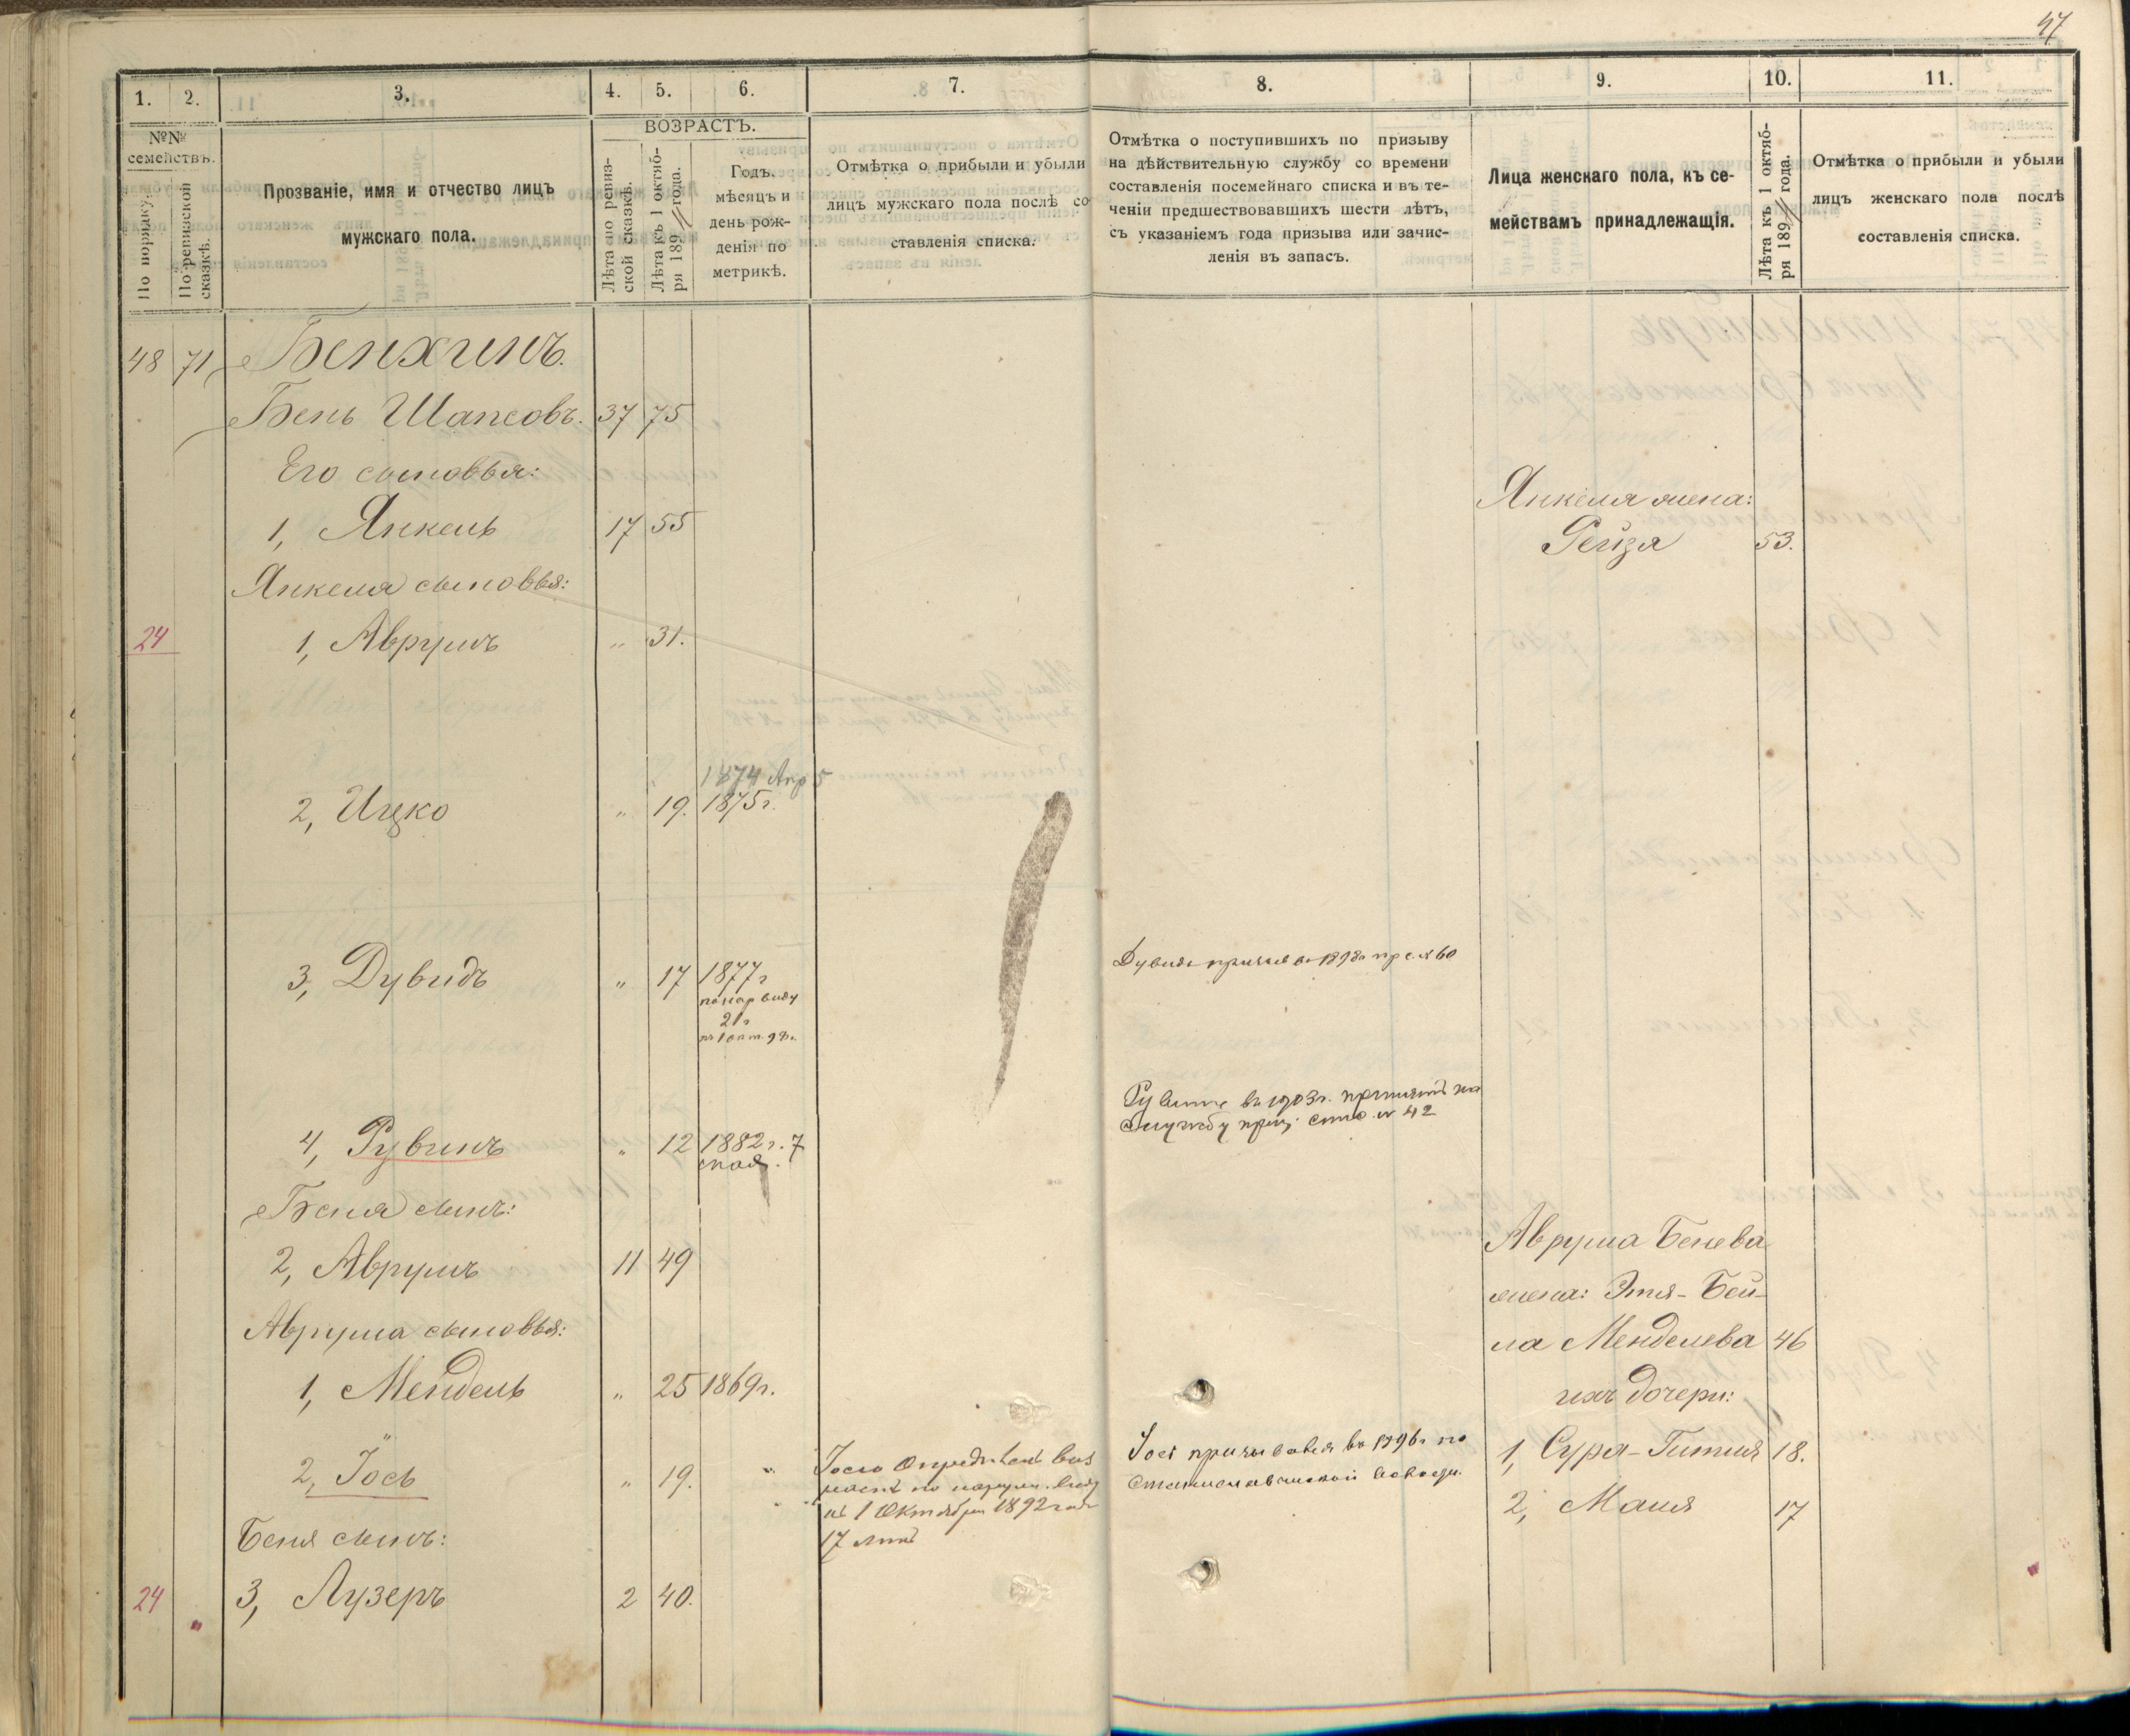 47
1. 2. 3. 4. 5. 6. 7. 8. 9. 10. 11.
№№ семействъ.
По порядку.
По ревизской сказкѣ.
Прозваніе, имя и отчество лицъ
мужскаго пола.
ВОЗРАСТЪ.
Лѣта по ревиз-
ской сказкѣ.
Лѣта къ 1 октяб-
ря 189 года.
Годъ.
мѣсяцъ и
день рож-
денія по
метрикѣ.
Отмѣтка о прибыли и убыли
лицъ мужскаго пола послѣ со
ставленія списка.
Отмѣтка о поступившихъ по призыву
на дѣйствительную службу со времени
составленія посемейнаго списка и въ те-
ченіи предшествовавшихъ шести лѣтъ,
съ указаніемъ года призыва или зачис-
ленія въ запасъ.
Лица женскаго пола, къ се-
мействамъ принадлежащія.
Лѣта къ 1 октяб-
ря 189 года.
Отмѣтка о прибыли и убыли
лицъ женскаго пола послѣ
составленія списка.
48 71 Бенхинъ.
Бень Шапсовъ. 37 75
Его сыновья:
Янкеля жена:
1, Янкель 17 55
Рейза 53.
Янкеля сыновья:
24 1, Аврумъ " 31.
1874 Апр 5
2, Ицко " 19. 1875г.
3, Дувидъ " 17 1877г
по нар виду
21г
къ 1 окт. 98г.
Дувидъ призыв въ 1898г пр с. № 60
4, Рувинъ " 12 1882г. 7
Рувинъ въ 1903г. принятъ на
службу приз. спис. № 42
Беня сынъ:
2, Аврумъ 11 49
Аврума Бенева
жена: Этя-Бей-
ла Менделева 46
Аврума сыновья:
1, Мендель " 25 1869г.
ихъ дочери:
2, Іось " 19. "
Іосю Опредѣленъ воз
растъ по наружн. виду
къ 1 Октября 1892 года
17 лѣтъ
Іось призывался въ 1896г по
1, Сура-Гитля 18.
2, Маля 17
Беня сынъ:
24 " 3, Лузеръ 2 40.